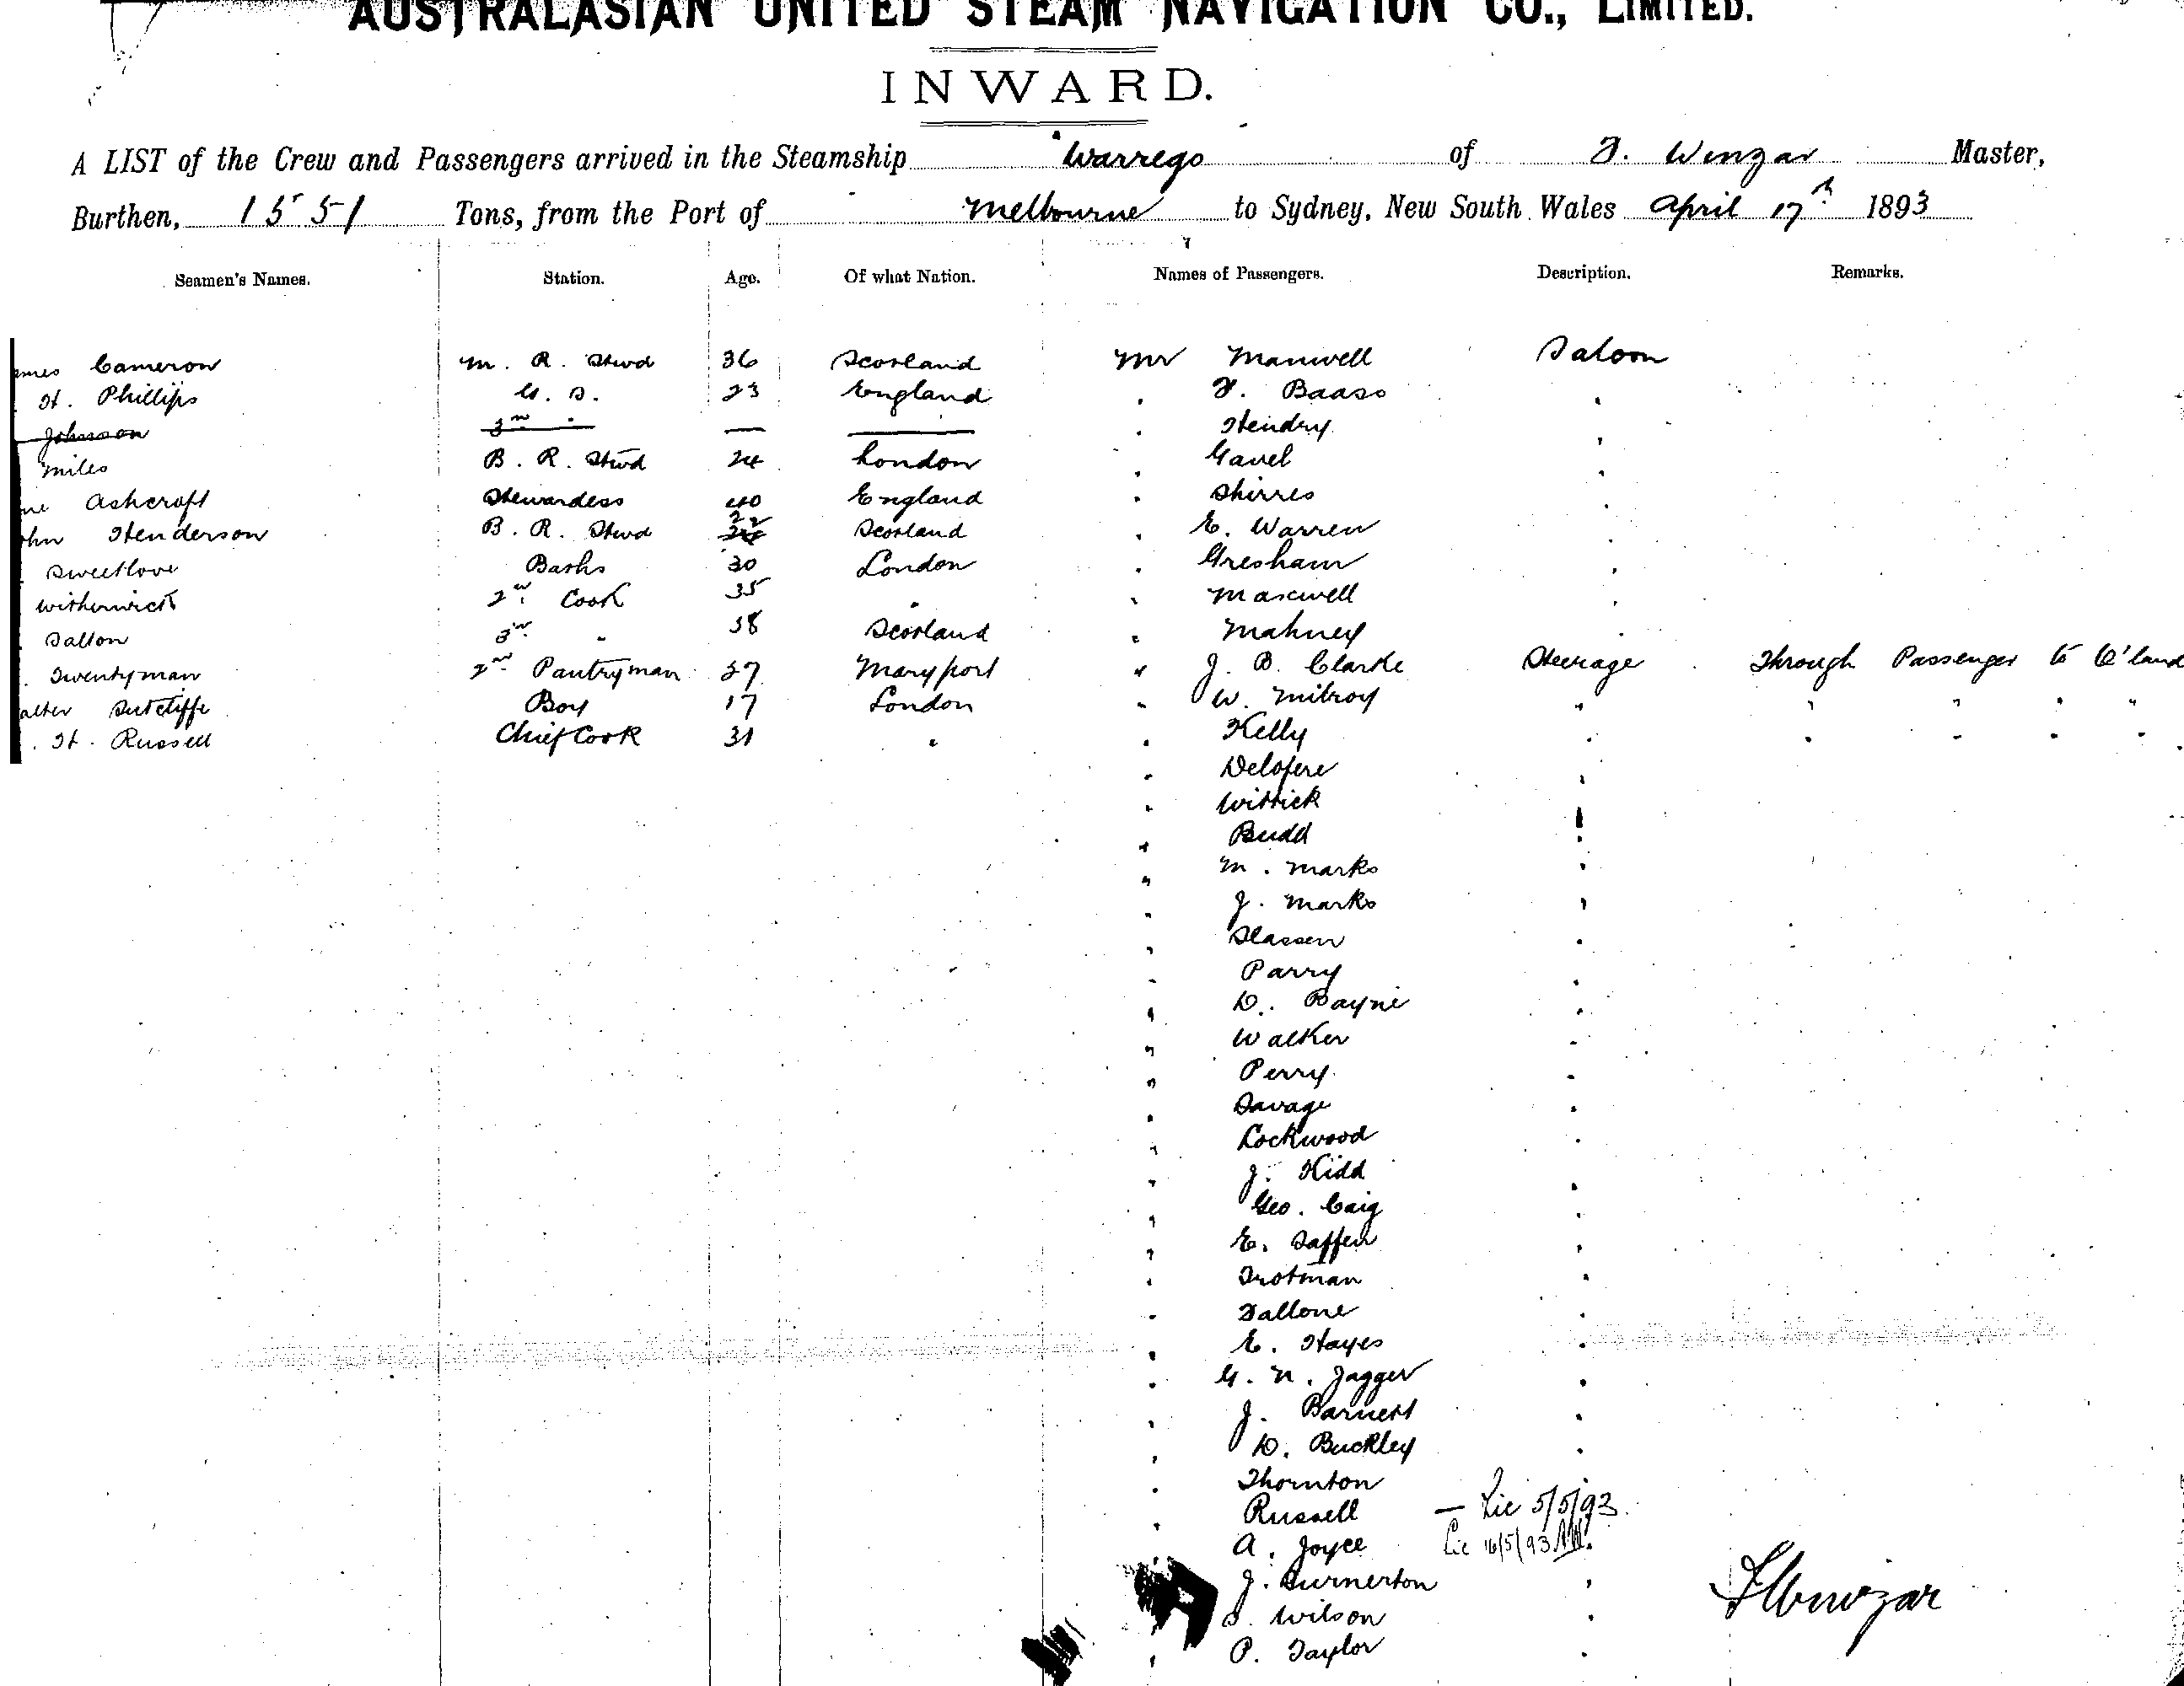 AUSTRALASIAN UNITED STEAM NAVIGATION CO., LIMITED.
INWARD.
A LIST of the Crew and Passengers arrived in the Steamship Warrego of F. Winzar Master,
Burthen, 1551 Tons, from the Port of Melbourne to Sydney, New South Wales April 17th 1893
Seamen's Names. Station. Age. Of what Nation. Names of Passengers. Description. Remarks.
ames Cameron M. R. Stwd 36 Scotland Mr Manwell Saloon
H. Phillips G. S. 23 England " F. Baass "
Johnson 3rd " — — " Hendry "
Miles B. R. Stwd 24 London " Gavel "
ne Ashcroft Stewardess 40 England " Shirres "
ohn Henderson B. R. Stwd 22 Scotland " E. Warren "
Sweetlove Barks 30 London " Gresham "
Witherwick 2nd Cook 35 " " Maxwell "
Dalton 3rd " 38 Scotland " Mahney "
Twentyman 2nd Pantryman 27 Maryport " J. B. Clarke Steerage Through Passenger to Q'land
alter Sutcliffe Boy 17 London " W. Milroy " " " " "
. H. Russell Chief Cook 31 " " Kelly " " " " "
" Delofere "
" Wittick "
" Budd "
" M. Marks "
" J. Marks "
" Slassen "
" Parry "
" D. Bayne "
" Walker "
" Perry "
" Savage "
" Lockwood "
" J. Kidd "
" Geo. Caig "
" E. Saffen "
" Trotman "
" Fallone "
" E. Hayes "
" G. N. Jagger "
" J. Barnett "
" D. Buckley "
" Thornton "
" Russell — Lic 5/5/93.
A. Joyce Lic 16/5/93
J. Surnerton "
S. Wilson "
" P. Taylor "
F Winzar